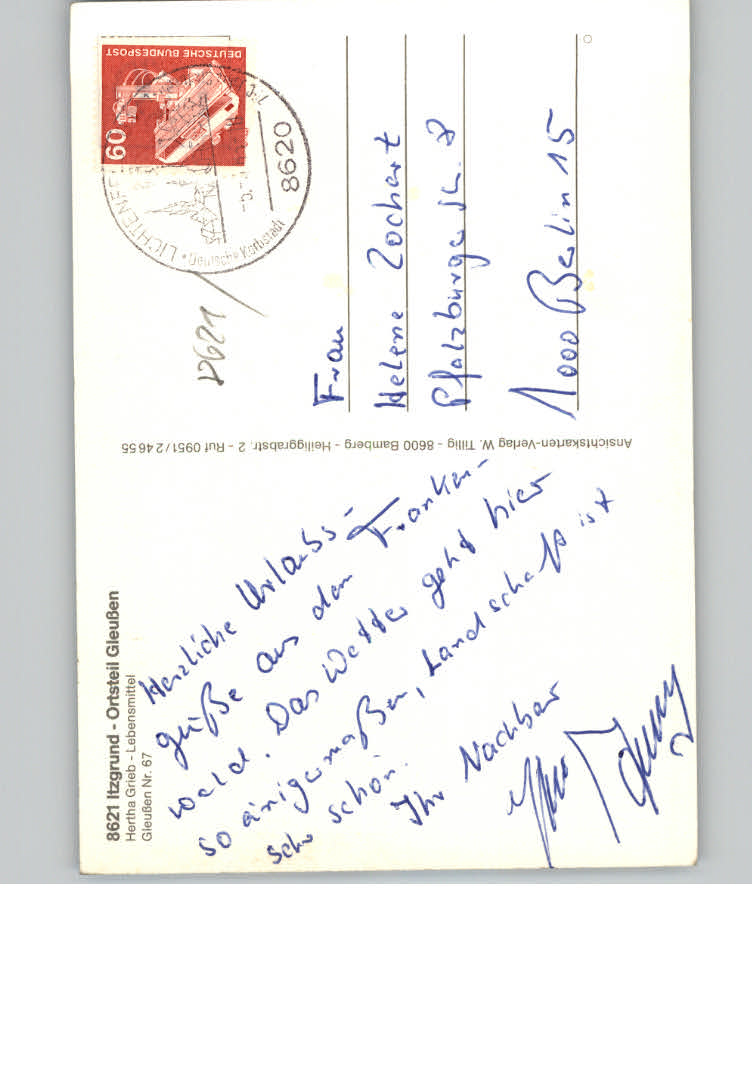 8621 Itzgrund - Ortsteil Gleußen
Hertha Grieb - Lebensmittel
Gleußen Nr. 67
Herzliche Urlaubs-
grüße aus dem Franken-
wald. Das Wetter geht hier
so einigermaßen, Landschaft ist
sehr schön.
Ihr Nachbar
Ansichtskarten-Verlag W. Tillig - 8600 Bamberg - Heiliggrabstr. 2 - Ruf 0951/2 46 55
DEUTSCHE BUNDESPOST
60
8620
LICHTENFELS
Deutsche Korbstadt
8621
Frau
Helene Zochert
Pfalzburger Str. 7
1000 Berlin 15